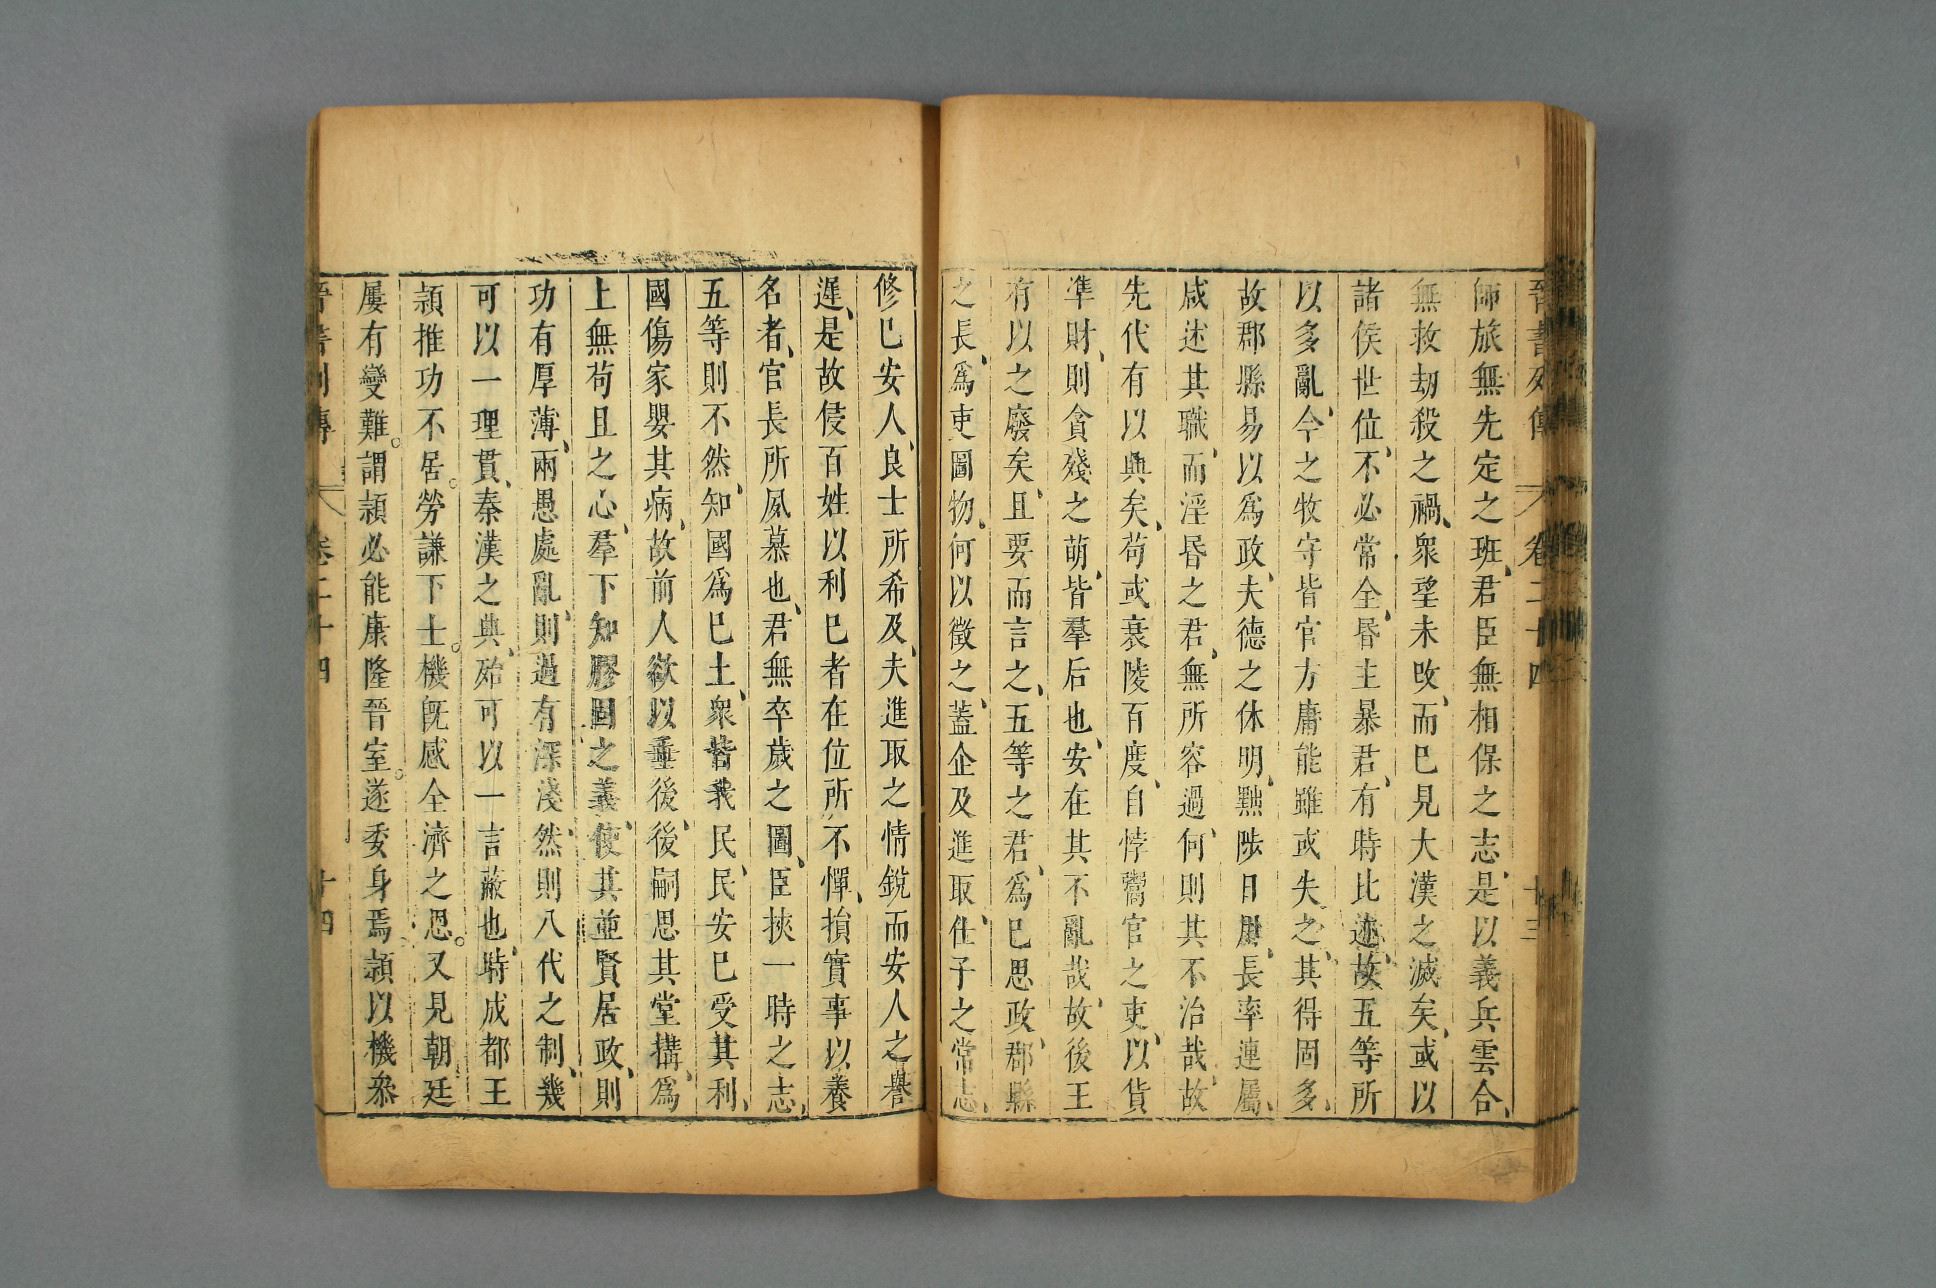 晉書列傳 卷二十四 十三
師旅無先定之班、君臣無相保之志、是以義兵雲合、
無救劫殺之禍、衆望未改、而已見大漢之滅矣、或以
諸侯世位、不必常全、昏主暴君、有時比迹、故五等所
以多亂、今之牧守皆官方庸能雖或失之、其得固多、
故郡縣易以爲政、夫德之休明、黜陟日用、長率連屬、
咸述其職、而淫昏之君、無所容過、何則其不治哉、故
先代有以典矣、苟或衰陵百度、自悖鬻官之吏、以貨
準財、則貪殘之萌、皆羣后也、安在其不亂哉、故後王
有以之廢矣、且要而言之、五等之君、爲已思政、郡縣
之長、爲吏圖物、何以徵之、蓋企及進取、仕子之常志、
修已安人、良士所希及、夫進取之情銳而安人之譽
遲、是故侵百姓以利已者在位所不憚、損實事以養
名者、官長所夙慕也、君無卒歲之圖、臣挾一時之志、
五等則不然、知國爲已土、衆皆我民、民安已受其利、
國傷家嬰其病、故前人欲以垂後、後嗣思其堂構、爲
上無苟且之心、羣下知膠固之義、使其並賢居政、則
功有厚薄、兩愚處亂、則過有深淺、然則八代之制、幾
可以一理貫、秦漢之典、殆可以一言蔽也、時成都王
穎推功不居。勞謙下士。機旣感全濟之恩。又見朝廷
屢有變難。謂穎必能康隆晉室。遂委身焉。穎以機叅
晉書列傳 卷二十四 十四